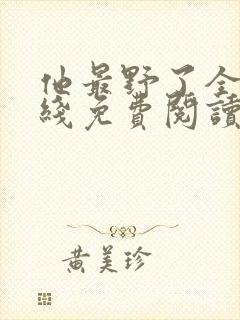 他最野了全
綫免費閱讀
黄美珍